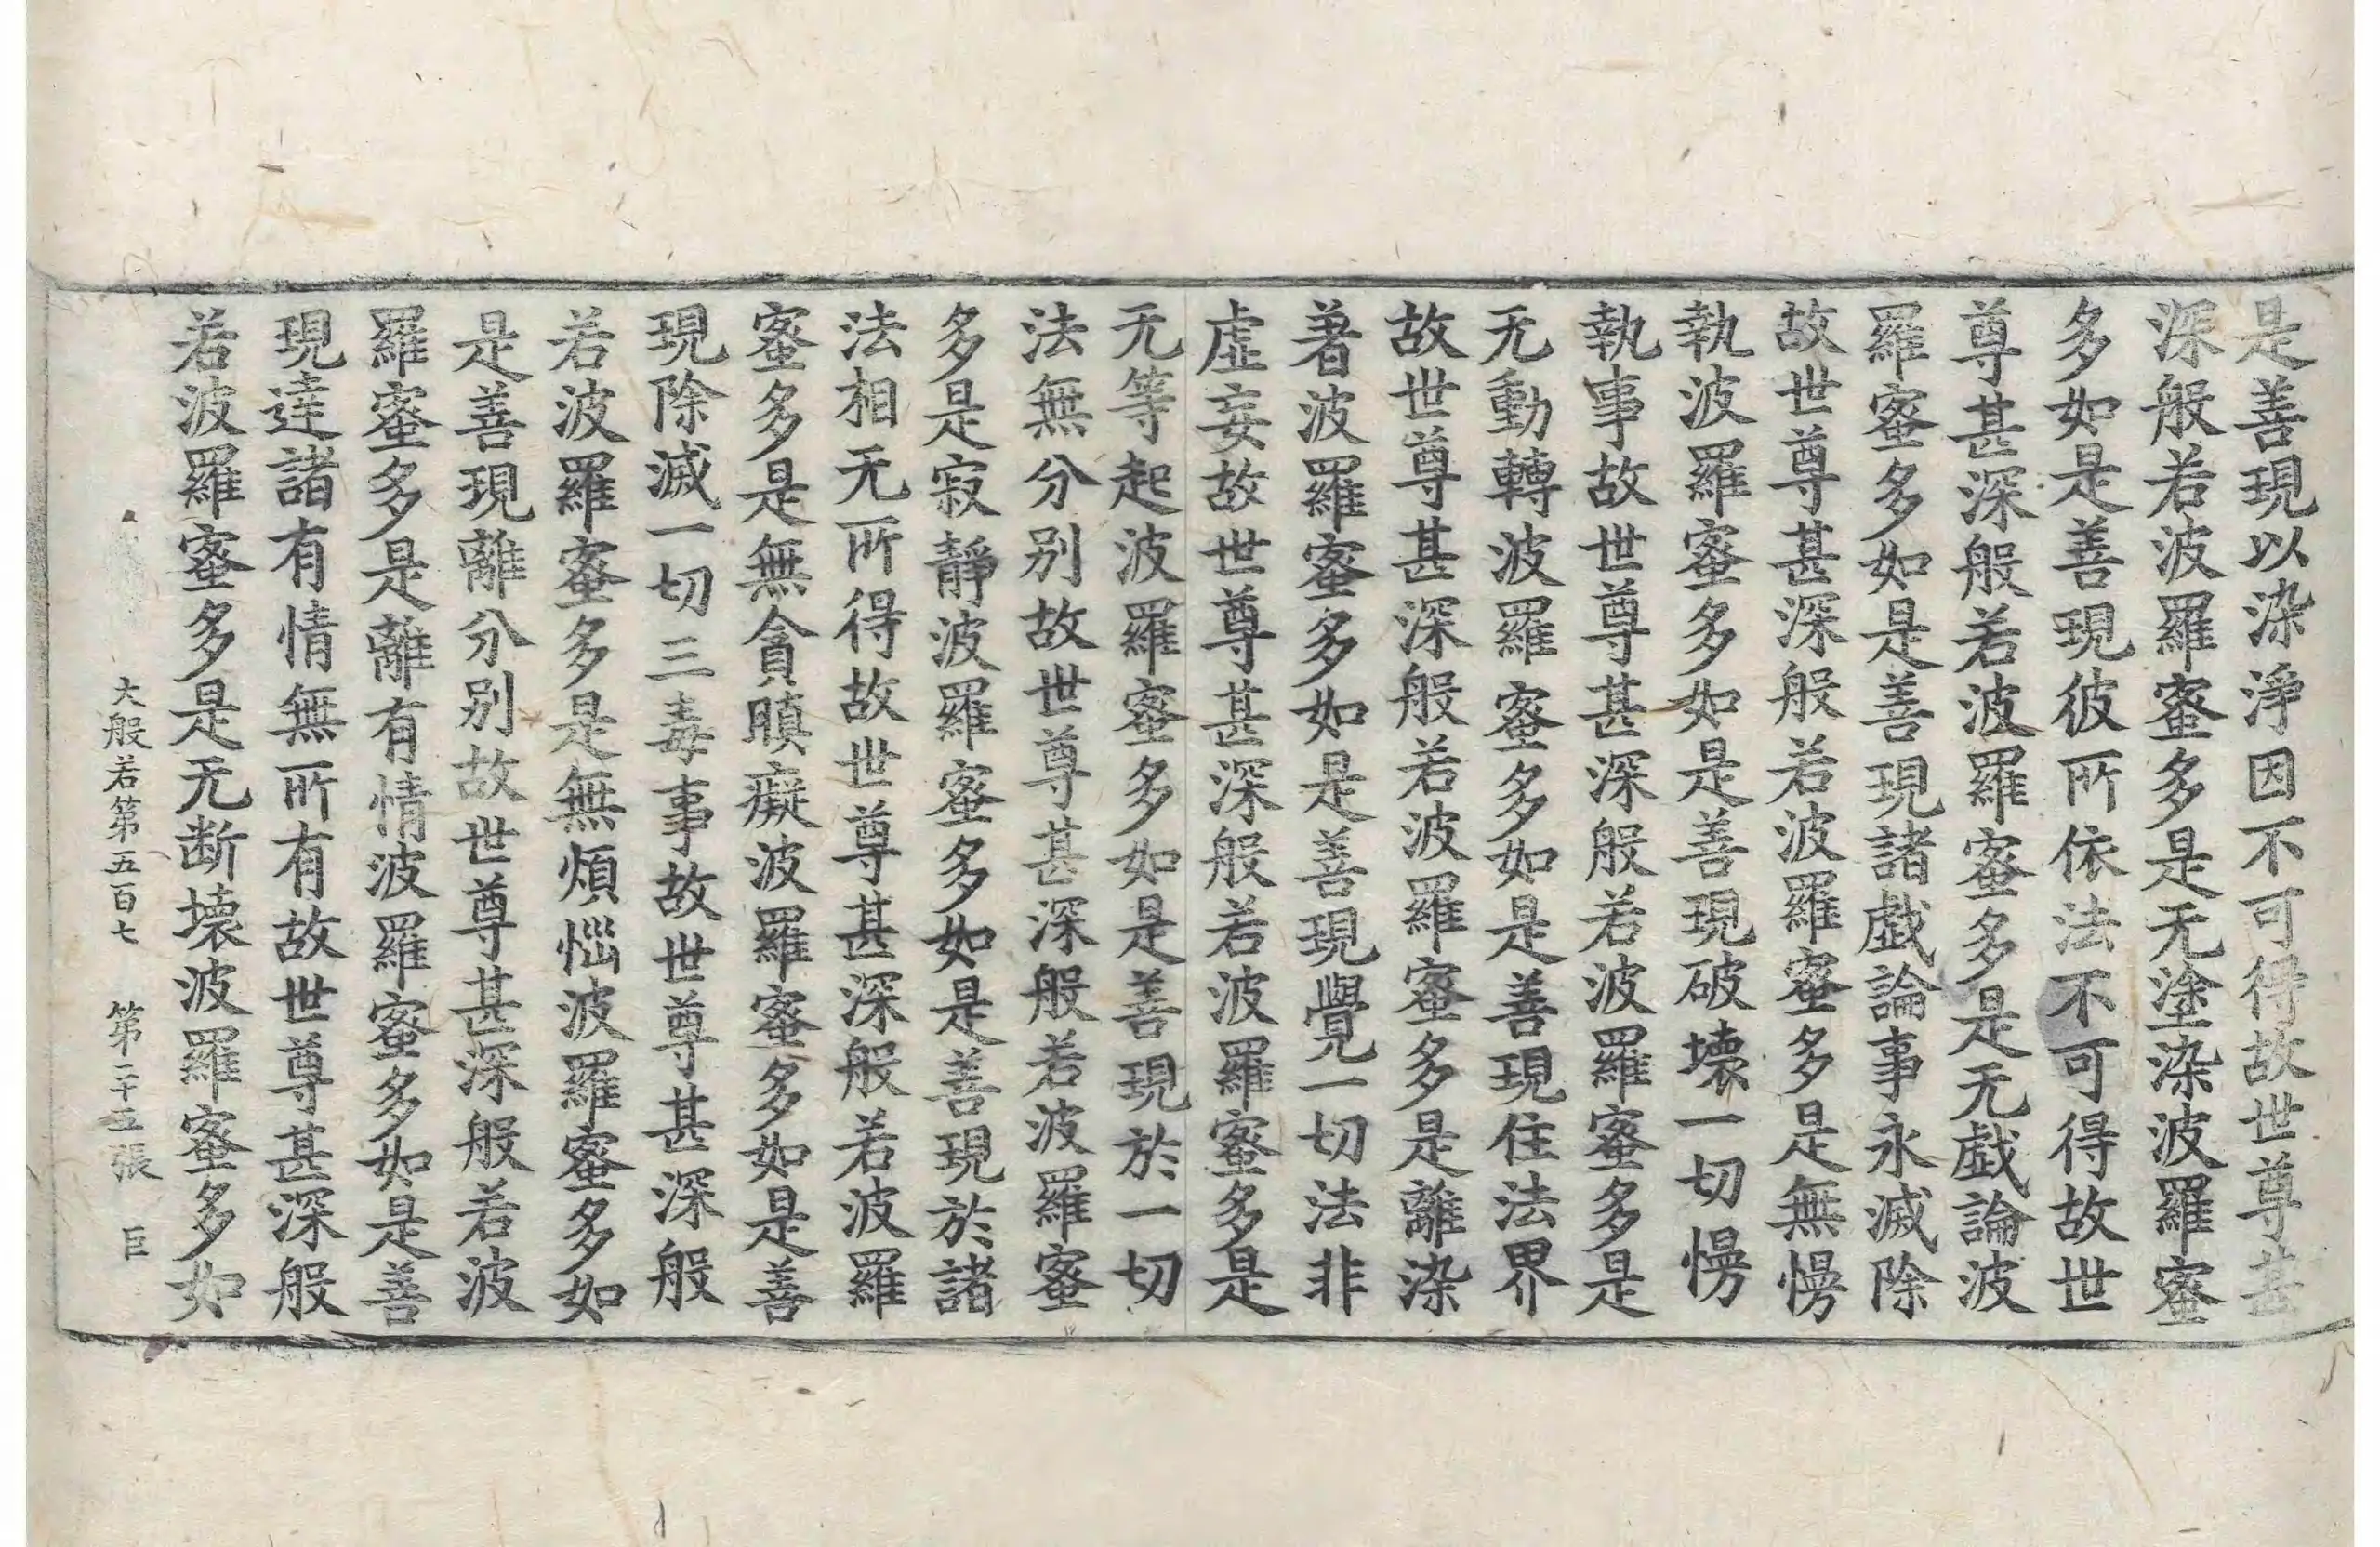 是善現以染淨因不可得故世尊甚
深般若波羅蜜多是无塗染波羅蜜
多如是善現彼所依法不可得故世
尊甚深般若波羅蜜多是无戲論波
羅蜜多如是善現諸戲論事永滅除
故世尊甚深般若波羅蜜多是無慢
執波羅蜜多如是善現破壞一切慢
執事故世尊甚深般若波羅蜜多是
无動轉波羅蜜多如是善現住法界
故世尊甚深般若波羅蜜多是離染
著波羅蜜多如是善現覺一切法非
虛妄故世尊甚深般若波羅蜜多是
无等起波羅蜜多如是善現於一切
法無分别故世尊甚深般若波羅蜜
多是寂靜波羅蜜多如是善現於諸
法相无所得故世尊甚深般若波羅
蜜多是無貪瞋癡波羅蜜多如是善
現除滅一切三毒事故世尊甚深般
若波羅蜜多是無煩惱波羅蜜多如
是善現離分别故世尊甚深般若波
羅蜜多是離有情波羅蜜多如是善
現達諸有情無所有故世尊甚深般
若波羅蜜多是无断壞波羅蜜多如
大般若第五百七 第二十五張 巨